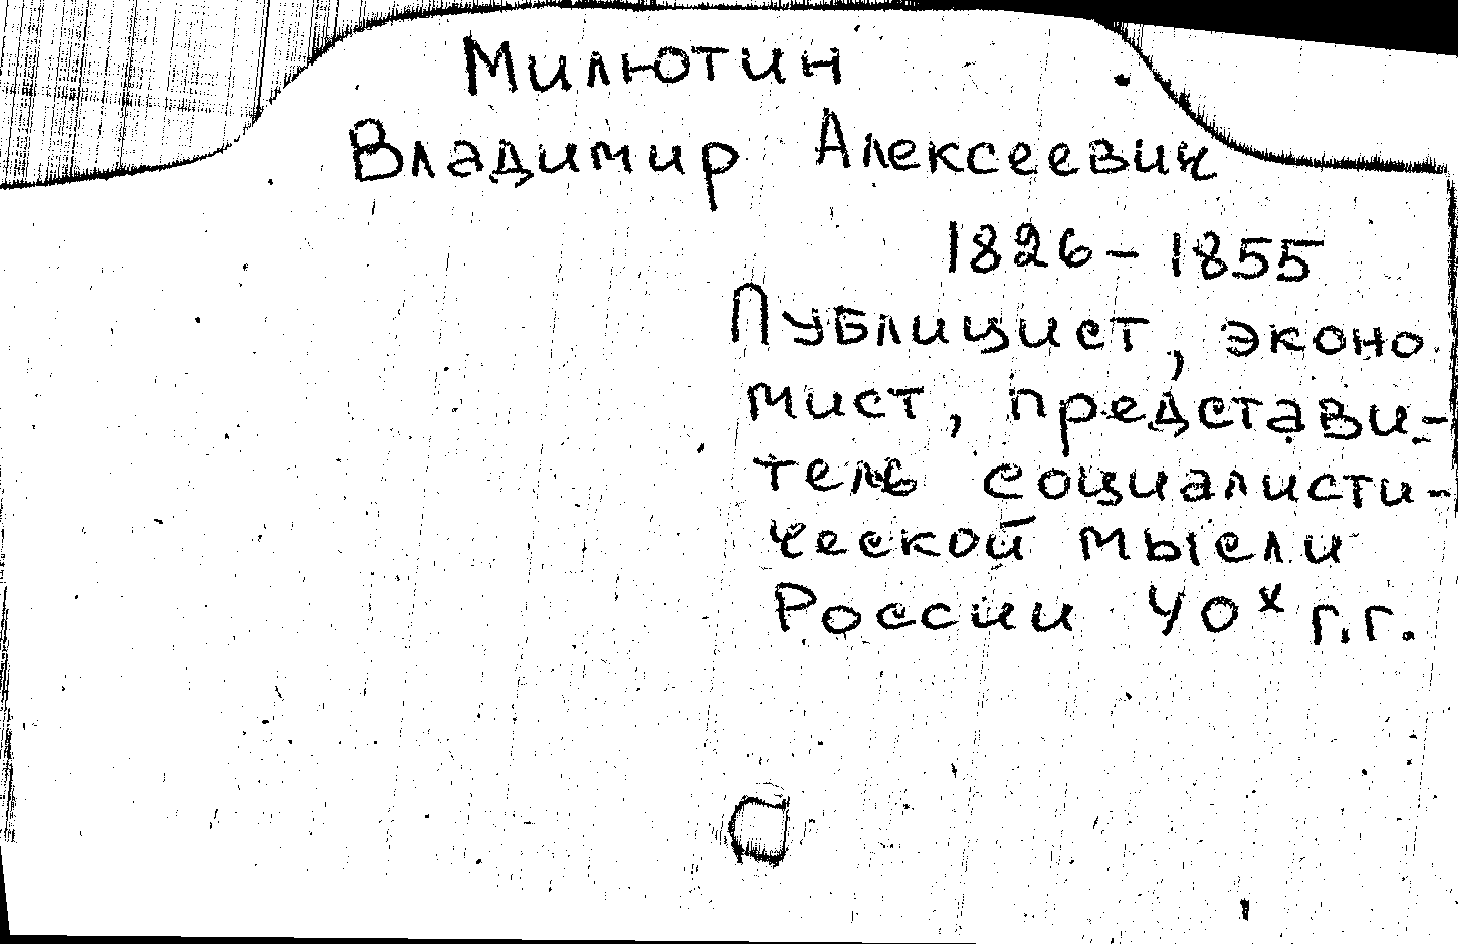 Милютин
Владимир Алексеевич
1826-1855
Публицист, эконо
мист, представи-
тель социалисти-
ческой мысли
России 40х г.г.